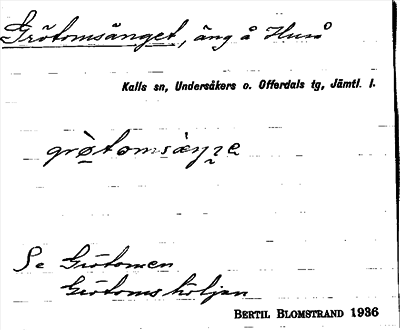 Grötomsänget, äng å Huså
Kalls sn, Undersåkers o. Offerdals tg, Jämtl. l.
grö̀tomsæŋ̀ŋe
Se Grötomen
Grötomsköljen
BERTIL BLOMSTRAND 1936